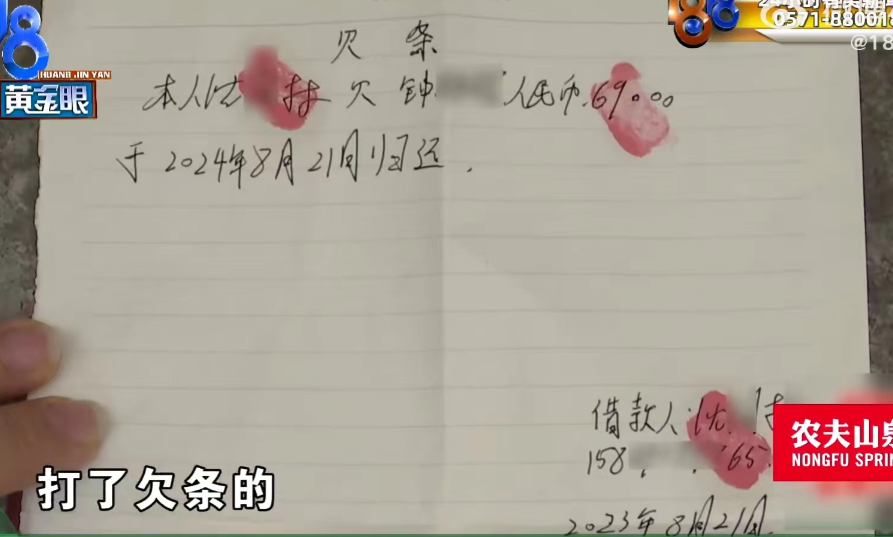 18
HUANG JIN YAN
黄金眼
24小时
0571-88001
@18
欠 条
本人沈 林 欠 钟 人民币.69000
于 2024年8月21日归还.
借款人:沈
158 65
2023年8月21日.
农夫山泉
NONGFU SPRIN
打了欠条的